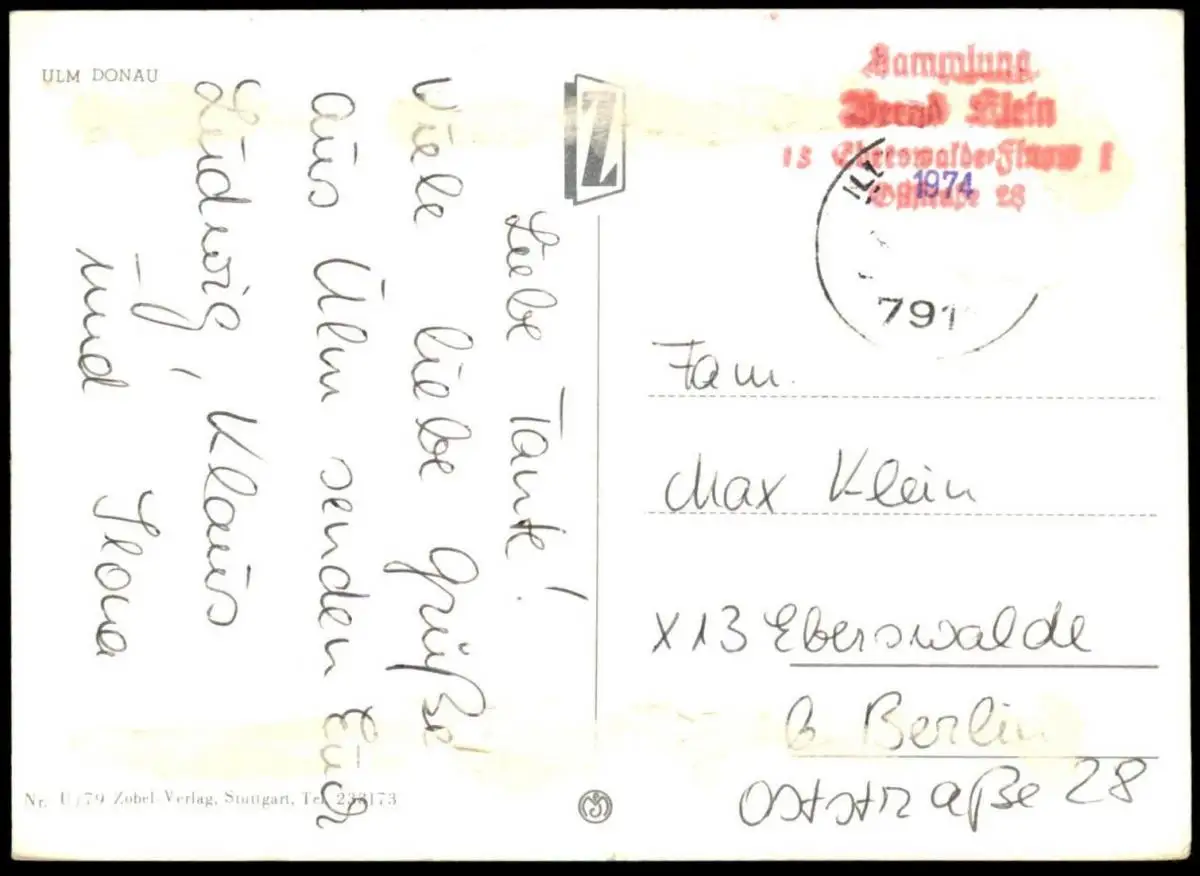 ULM DONAU
Liebe Tante!
Viele liebe Grüße
aus Ulm senden Euch
Ludwig, Klaus
und Ilona
Z
Sammlung
Bernd Klein
13 Eberswalde-Finow 1
Oststraße 28
1974
791
Fam.
Max Klein
X13 Eberswalde
b Berlin
Oststraße 28
Nr. U/79 Zobel Verlag, Stuttgart, Tel. 233173